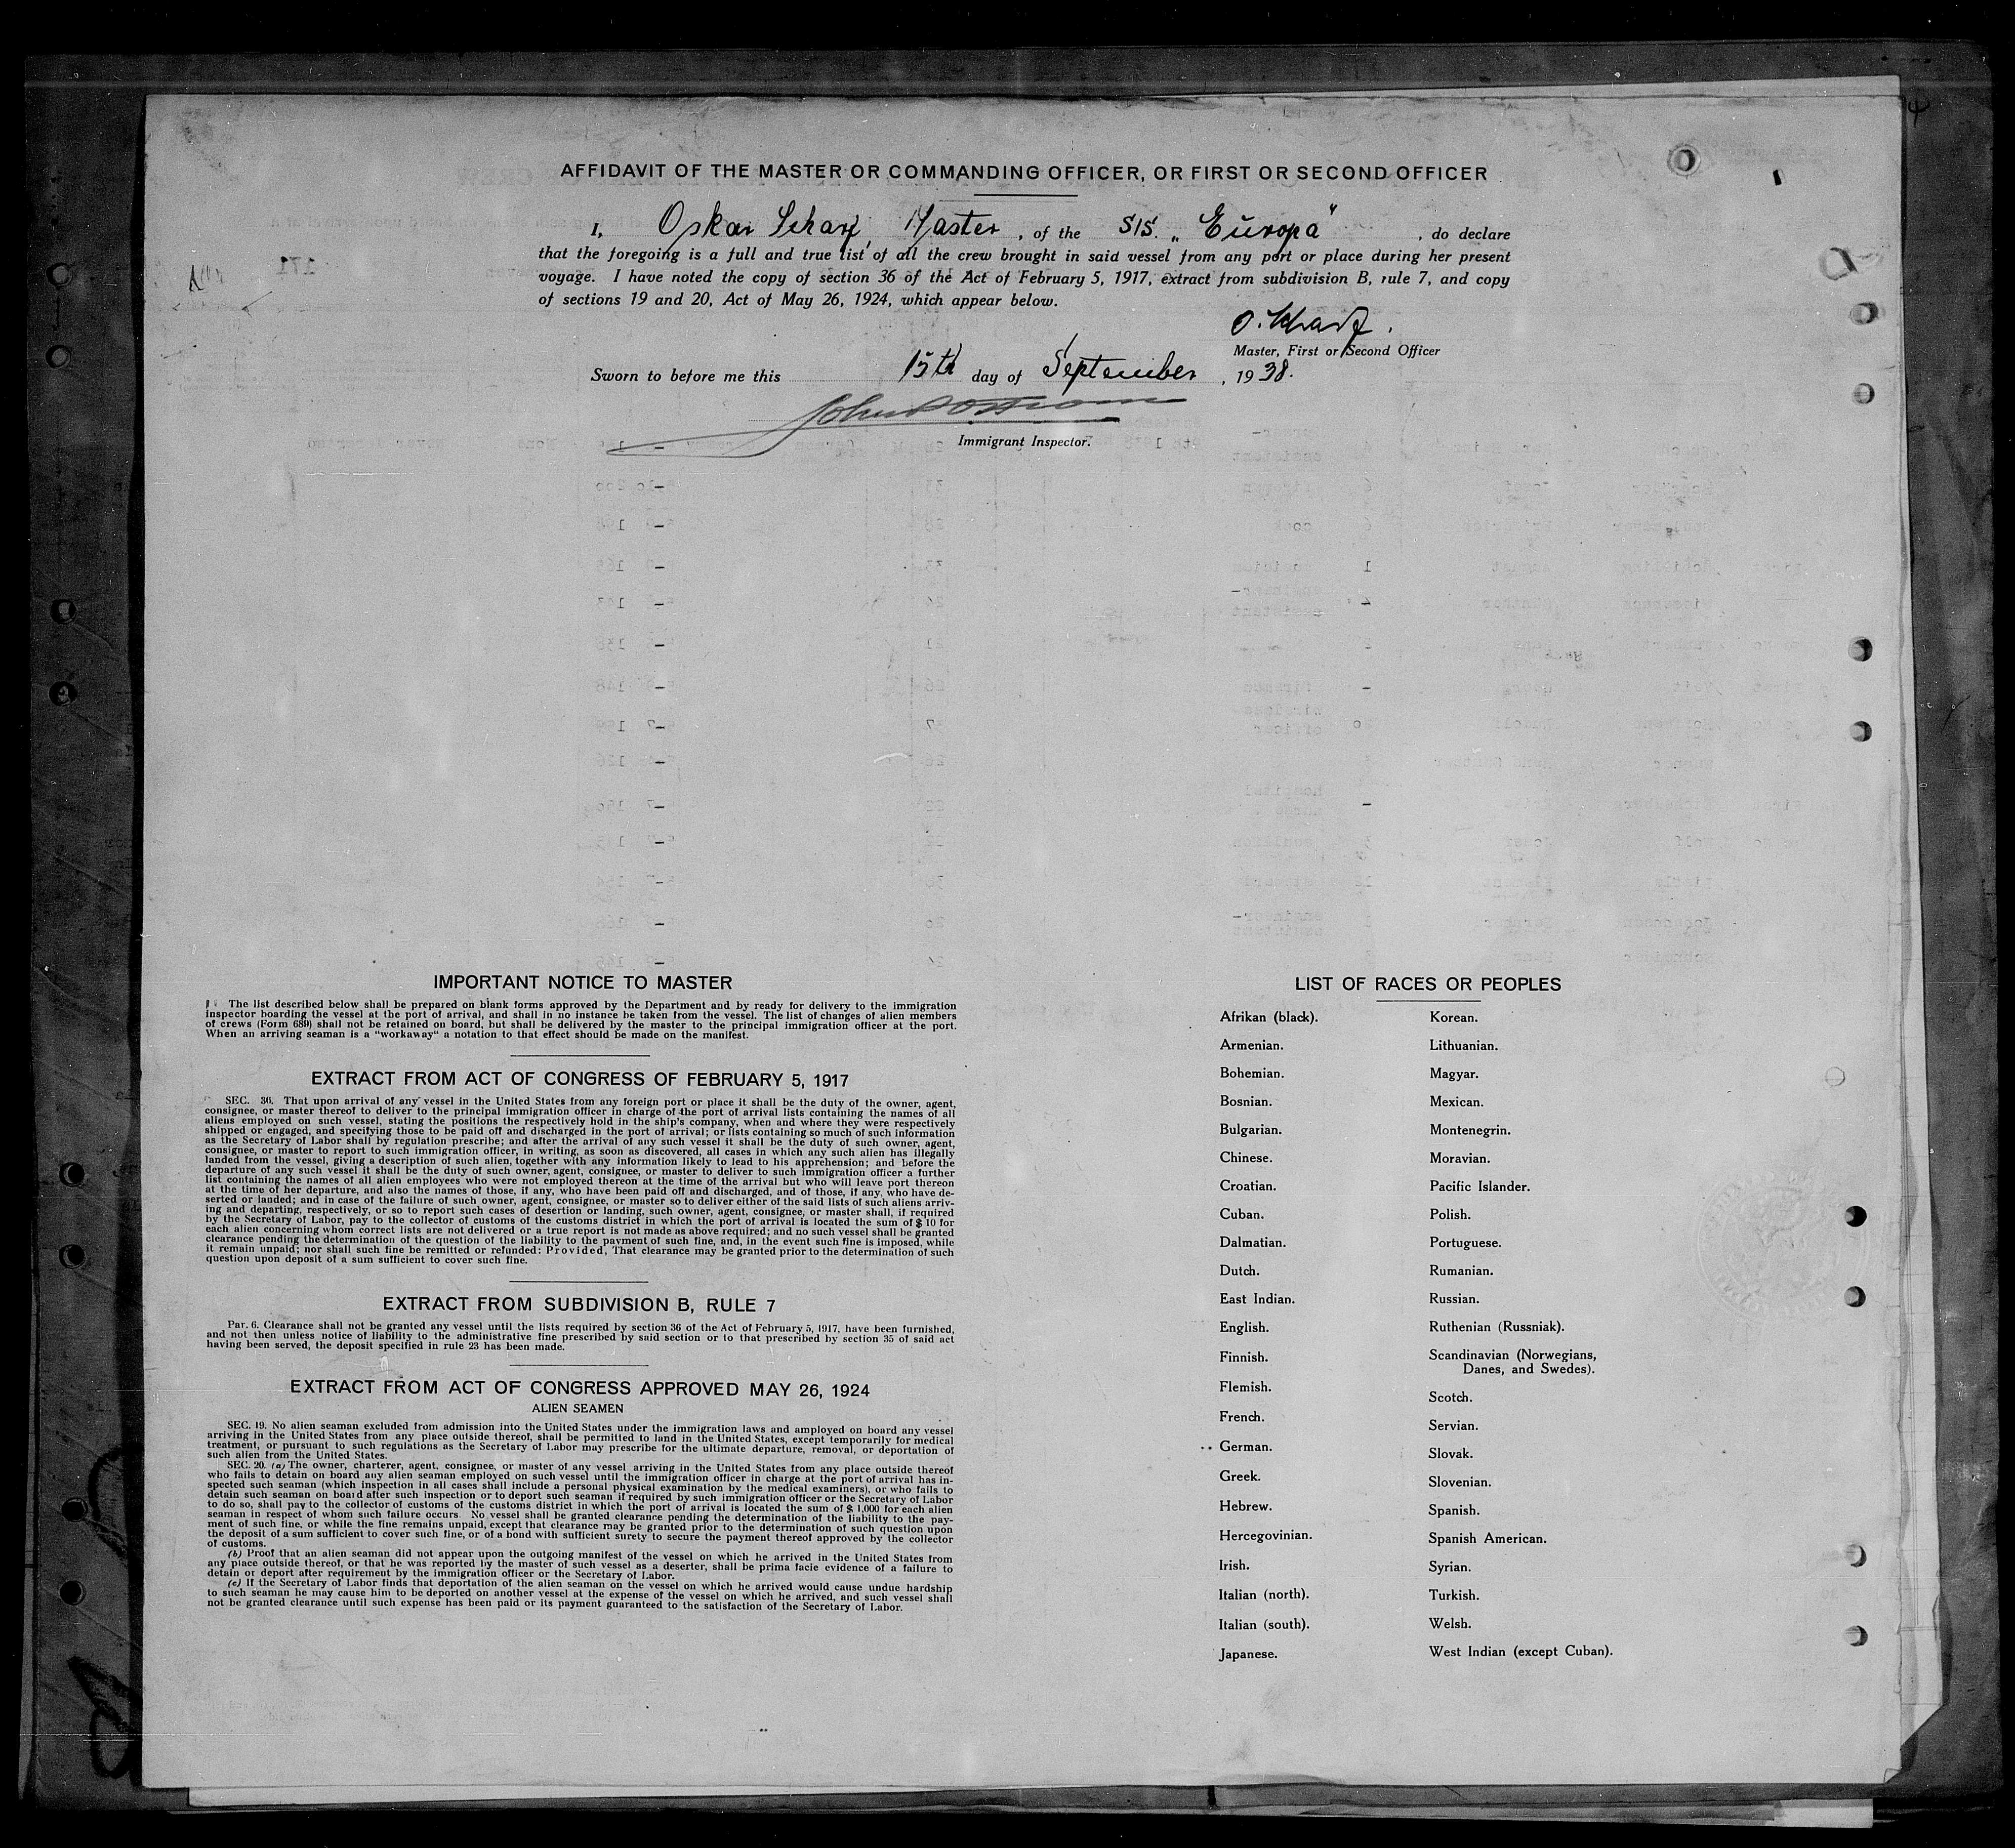 AFFIDAVIT OF THE MASTER OR COMMANDING OFFICER, OR FIRST OR SECOND OFFICER
I, Oskar Scharf, Master, of the S/S. „Europa“, do declare
that the foregoing is a full and true list of all the crew brought in said vessel from any port or place during her present
voyage. I have noted the copy of section 36 of the Act of February 5, 1917, extract from subdivision B, rule 7, and copy
of sections 19 and 20, Act of May 26, 1924, which appear below.
O. Scharf.
Master, First or Second Officer
Sworn to before me this 15th day of September, 1938.
Immigrant Inspector.
IMPORTANT NOTICE TO MASTER
The list described below shall be prepared on blank forms approved by the Department and by ready for delivery to the immigration
inspector boarding the vessel at the port of arrival, and shall in no instance be taken from the vessel. The list of changes of alien members
of crews (Form 689) shall not be retained on board, but shall be delivered by the master to the principal immigration officer at the port.
When an arriving seaman is a "workaway" a notation to that effect should be made on the manifest.
EXTRACT FROM ACT OF CONGRESS OF FEBRUARY 5, 1917
SEC. 36. That upon arrival of any vessel in the United States from any foreign port or place it shall be the duty of the owner, agent,
consignee, or master thereof to deliver to the principal immigration officer in charge of the port of arrival lists containing the names of all
aliens employed on such vessel, stating the positions the respectively hold in the ship's company, when and where they were respectively
shipped or engaged, and specifying those to be paid off and discharged in the port of arrival; or lists containing so much of such information
as the Secretary of Labor shall by regulation prescribe; and after the arrival of any such vessel it shall be the duty of such owner, agent,
consignee, or master to report to such immigration officer, in writing, as soon as discovered, all cases in which any such alien has illegally
landed from the vessel, giving a description of such alien, together with any information likely to lead to his apprehension; and before the
departure of any such vessel it shall be the duty of such owner, agent, consignee, or master to deliver to such immigration officer a further
list containing the names of all alien employees who were not employed thereon at the time of the arrival but who will leave port thereon
at the time of her departure, and also the names of those, if any, who have been paid off and discharged, and of those, if any, who have de-
serted or landed; and in case of the failure of such owner, agent, consignee, or master so to deliver either of the said lists of such aliens arriv-
ing and departing, respectively, or so to report such cases of desertion or landing, such owner, agent, consignee, or master shall, if required
by the Secretary of Labor, pay to the collector of customs of the customs district in which the port of arrival is located the sum of $ 10 for
each alien concerning whom correct lists are not delivered or a true report is not made as above required; and no such vessel shall be granted
clearance pending the determination of the question of the liability to the payment of such fine, and, in the event such fine is imposed, while
it remain unpaid; nor shall such fine be remitted or refunded: Provided, That clearance may be granted prior to the determination of such
question upon deposit of a sum sufficient to cover such fine.
EXTRACT FROM SUBDIVISION B, RULE 7
Par. 6. Clearance shall not be granted any vessel until the lists required by section 36 of the Act of February 5, 1917, have been furnished,
and not then unless notice of liability to the administrative fine prescribed by said section or to that prescribed by section 35 of said act
having been served, the deposit specified in rule 23 has been made.
EXTRACT FROM ACT OF CONGRESS APPROVED MAY 26, 1924
ALIEN SEAMEN
SEC. 19. No alien seaman excluded from admission into the United States under the immigration laws and amployed on board any vessel
arriving in the United States from any place outside thereof, shall be permitted to land in the United States, except temporarily for medical
treatment, or pursuant to such regulations as the Secretary of Labor may prescribe for the ultimate departure, removal, or deportation of
such alien from the United States.
SEC. 20. (a) The owner, charterer, agent, consignee, or master of any vessel arriving in the United States from any place outside thereof
who fails to detain on board any alien seaman employed on such vessel until the immigration officer in charge at the port of arrival has in-
spected such seaman (which inspection in all cases shall include a personal physical examination by the medical examiners), or who fails to
detain such seaman on board after such inspection or to deport such seaman if required by such immigration officer or the Secretary of Labor
to do so, shall pay to the collector of customs of the customs district in which the port of arrival is located the sum of $ 1,000 for each alien
seaman in respect of whom such failure occurs. No vessel shall be granted clearance pending the determination of the liability to the pay-
ment of such fine, or while the fine remains unpaid, except that clearance may be granted prior to the determination of such question upon
the deposit of a sum sufficient to cover such fine, or of a bond with sufficient surety to secure the payment thereof approved by the collector
of customs.
(b) Proof that an alien seaman did not appear upon the outgoing manifest of the vessel on which he arrived in the United States from
any place outside thereof, or that he was reported by the master of such vessel as a deserter, shall be prima facie evidence of a failure to
detain or deport after requirement by the immigration officer or the Secretary of Labor.
(c) If the Secretary of Labor finds that deportation of the alien seaman on the vessel on which he arrived would cause undue hardship
to such seaman he may cause him to be deported on another vessel at the expense of the vessel on which he arrived, and such vessel shall
not be granted clearance until such expense has been paid or its payment guaranteed to the satisfaction of the Secretary of Labor.
LIST OF RACES OR PEOPLES
Afrikan (black).
Armenian.
Bohemian.
Bosnian.
Bulgarian.
Chinese.
Croatian.
Cuban.
Dalmatian.
Dutch.
East Indian.
English.
Finnish.
Flemish.
French.
German.
Greek.
Hebrew.
Hercegovinian.
Irish.
Italian (north).
Italian (south).
Japanese.
Korean.
Lithuanian.
Magyar.
Mexican.
Montenegrin.
Moravian.
Pacific Islander.
Polish.
Portuguese.
Rumanian.
Russian.
Ruthenian (Russniak).
Scandinavian (Norwegians,
Danes, and Swedes).
Scotch.
Servian.
Slovak.
Slovenian.
Spanish.
Spanish American.
Syrian.
Turkish.
Welsh.
West Indian (except Cuban).